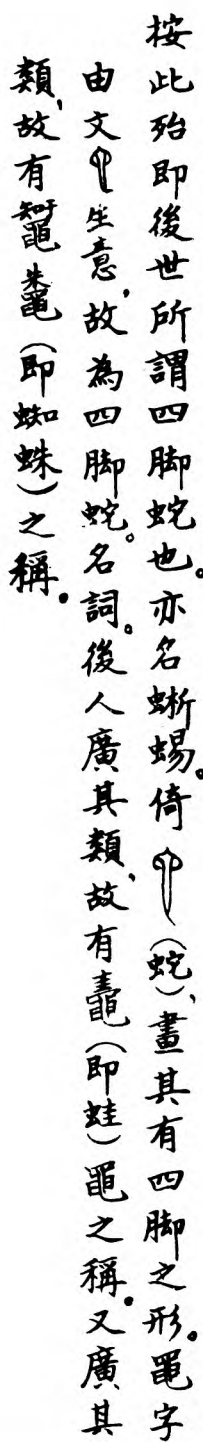 按此殆即後世所謂四脚蛇也。亦名蜥蜴。倚(蛇)、畫其有四脚之形。黽字
由文生意，故為四脚蛇。名詞。後人廣其類，故有鼃(即蛙)黽之稱。又廣其
類，故有鼅鼄(即蜘蛛)之稱。